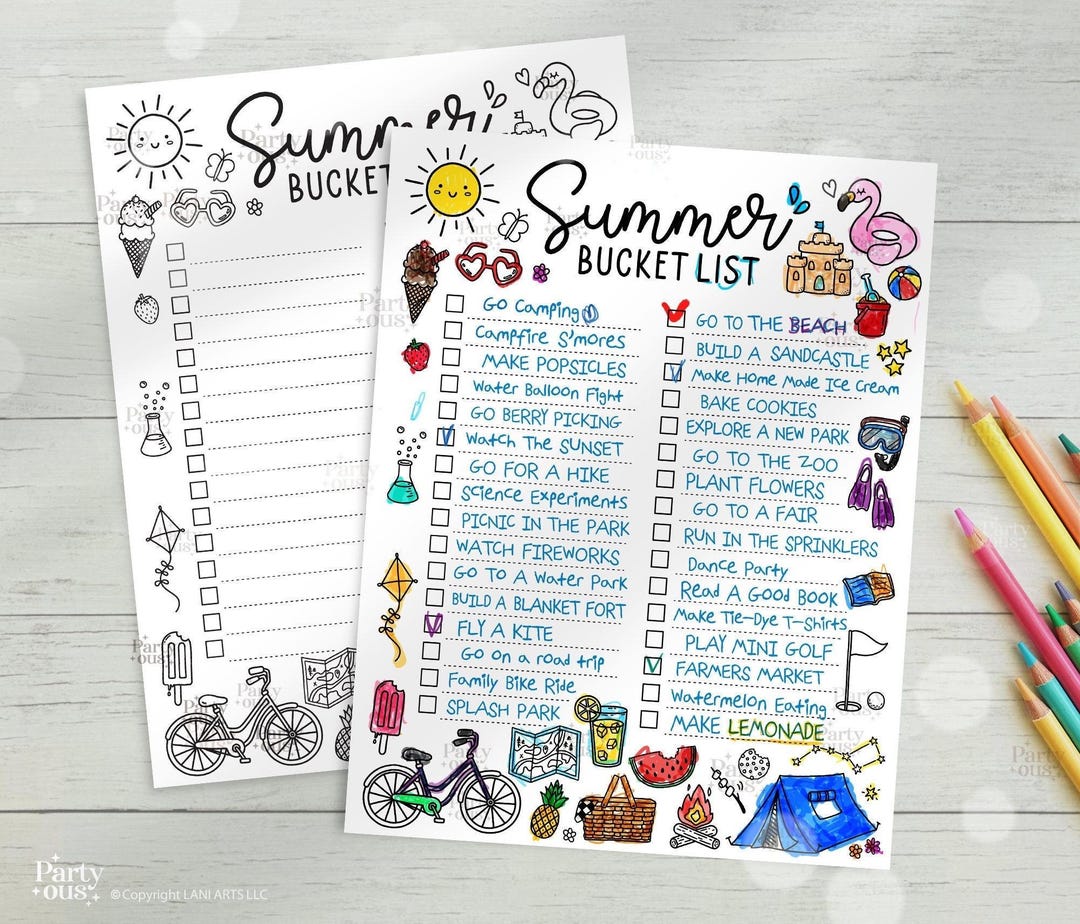 Summer
BUCKET
Summer
BUCKET LIST
Go Camping
Campfire S'mores
MAKE POPSICLES
Water Balloon Fight
GO BERRY PICKING
Watch The SUNSET
GO FOR A HIKE
Science Experiments
PICNIC IN THE PARK
WATCH FIREWORKS
GO TO A Water Park
BUILD A BLANKET FORT
FLY A KITE
Go On a road trip
Family Bike Ride
SPLASH PARK
GO TO THE BEACH
BUILD A SANDCASTLE
Make Home Made Ice Cream
BAKE COOKIES
EXPLORE A NEW PARK
GO TO THE ZOO
PLANT FLOWERS
GO TO A FAIR
RUN IN THE SPRINKLERS
Dance Party
Read A Good Book
Make Tie-Dye T-Shirts
PLAY MINI GOLF
FARMERS MARKET
Watermelon Eating
MAKE LEMONADE
Party
ous
© Copyright LANI ARTS LLC